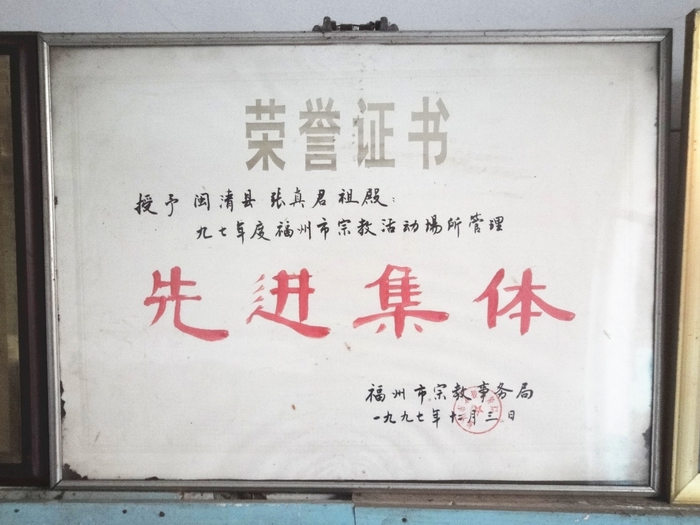 荣誉证书
授予闽清县张真君祖殿:
九七年度福州市宗教活动場所管理
先进集体
福州市宗教事务局
一九九七年十二月三日